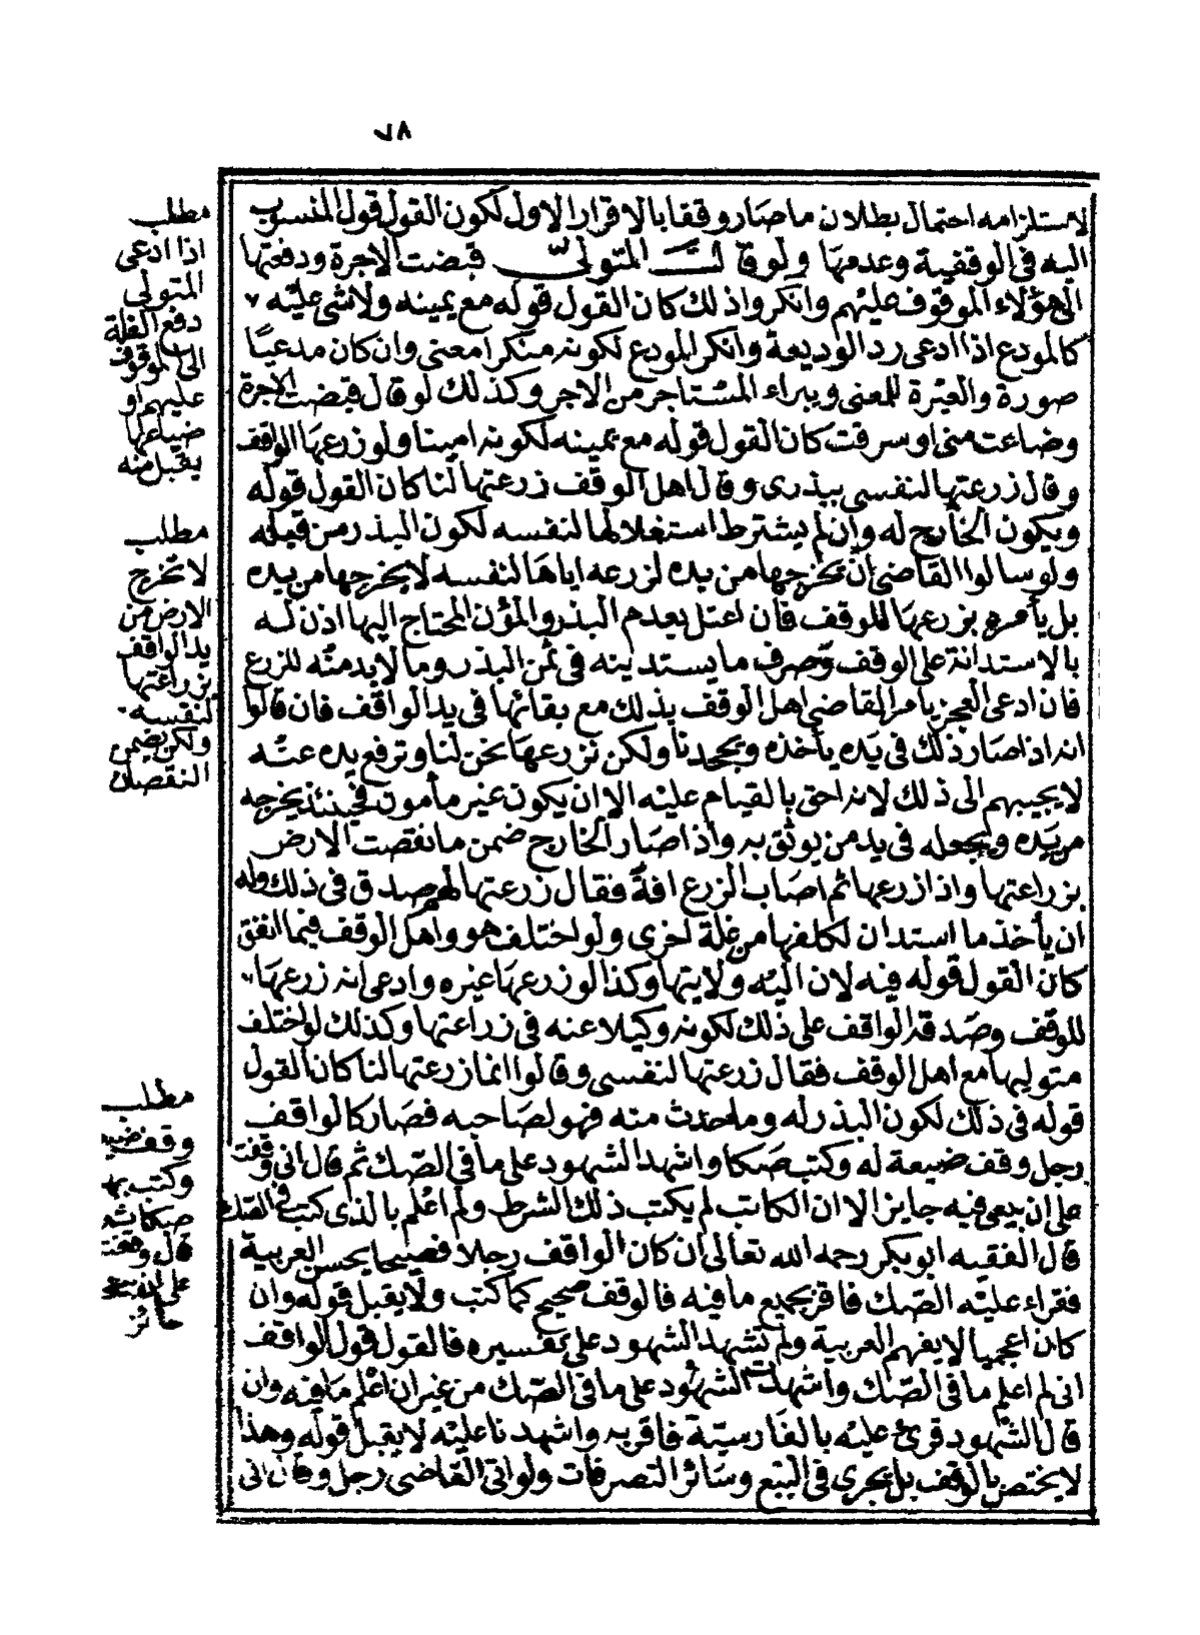 ٧٨
لاستلزامه احتمال بطلان ما صار وقفا بالاقرار الاول لكون القول قول المنسوب
اليه فى الوقفية وعدمها ولو قال المتولى قبضت الاجرة ودفعتها
الى هؤلاء الموقوف عليهم وانكروا ذلك كان القول قوله مع يمينه ولا شى عليه
كالمودع اذا ادعى رد الوديعة وانكر المودع لكونه منكرا معنى وان كان مدعيا
صورة والعبرة للمعنى ويبراء المستاجر من الاجر وكذلك لو قال قبضت الاجرة
وضاعت منى او سرقت كان القول قوله مع يمينه لكونه امينا ولو زرعها الواقف
وقال زرعتها لنفسى ببذرى وقال اهل الوقف زرعتها لنا كان القول قوله
ويكون الخارج له وان لم يشترط استغلالها لنفسه لكون البذر من قبله
ولو سالوا القاضى ان يخرجها من يده لزرعه اياها لنفسه لا يخرجها من يده
بل يأمره بزرعها للوقف فان اعتل بعدم البذر والمؤن المحتاج اليها اذن له
بالاستدانة على الوقف وصرف ما يستدينه فى ثمن البذر وما لا بد منه للزرع
فان ادعى العجز يامر القاضى اهل الوقف بذلك مع بقائها فى يد الواقف فان قالوا
انه اذا صار ذلك فى يده يأخذه ويجحدنا ولكن نزرعها نحن لنا وترفع يده عنه
لا يجيبهم الى ذلك لانه احق بالقيام عليه الا ان يكون غير مأمون فحينئذ يخرجه
من يده ويجعله فى يد من يوثق به واذا صار الخارج ضمن ما نقصت الارض
بزراعتها واذا زرعها ثم اصاب الزرع افة فقال زرعتها لهم صدق فى ذلك وله
ان يأخذ ما استدان لكلفها من غلة اخرى ولو اختلف هو واهل الوقف فيما انفق
كان القول قوله فيه لان اليه ولايتها وكذا لو زرعها غيره وادعى انه زرعها
للوقف وصدقه الواقف على ذلك لكونه وكيلا عنه فى زراعتها وكذلك لو اختلف
متوليها مع اهل الوقف فقال زرعتها لنفسى وقالوا انما زرعتها لنا كان القول
قوله فى ذلك لكون البذر له وما حدث منه فهو لصاحبه فصار كالواقف
رجل وقف ضيعة له وكتب صكا واشهد الشهود على ما فى الصك ثم قال انى وقفت
على ان بيعى فيه جايز الا ان الكاتب لم يكتب ذلك الشرط ولم اعلم بالذى كتب فى الصك
قال الفقيه ابو بكر رحمه الله تعالى ان كان الواقف رجلا فصيحا يحسن العربية
فقراء عليه الصك فاقر بجميع ما فيه فالوقف صحيح كما كتب ولا يقبل قوله وان
كان اعجميا لا يفهم العربية ولم تشهد الشهود على تفسيره فالقول قول الواقف
انى لم اعلم ما فى الصك واشهدت الشهود على ما فى الصك من غير ان اعلم ما فيه وان
قال الشهود قرئ عليه بالفارسية فاقر به واشهدنا عليه لا يقبل قوله وهذا
لا يختص بالوقف بل يجرى فى البيع وسائر التصرفات ولو اتى القاضى رجل وقال انى
مطلب
اذا ادعى
المتولى
دفع الغلة
الى الموقوف
عليهم او
ضياعها
يقبل منه
مطلب
لا تخرج
الارض من
يد الواقف
بزراعتها
لنفسه
ولكن يضمن
النقصان
مطلب
وقف ضيعة
وكتب بها
صكا ثم
قال وقفت
على ان بيعى
جائز